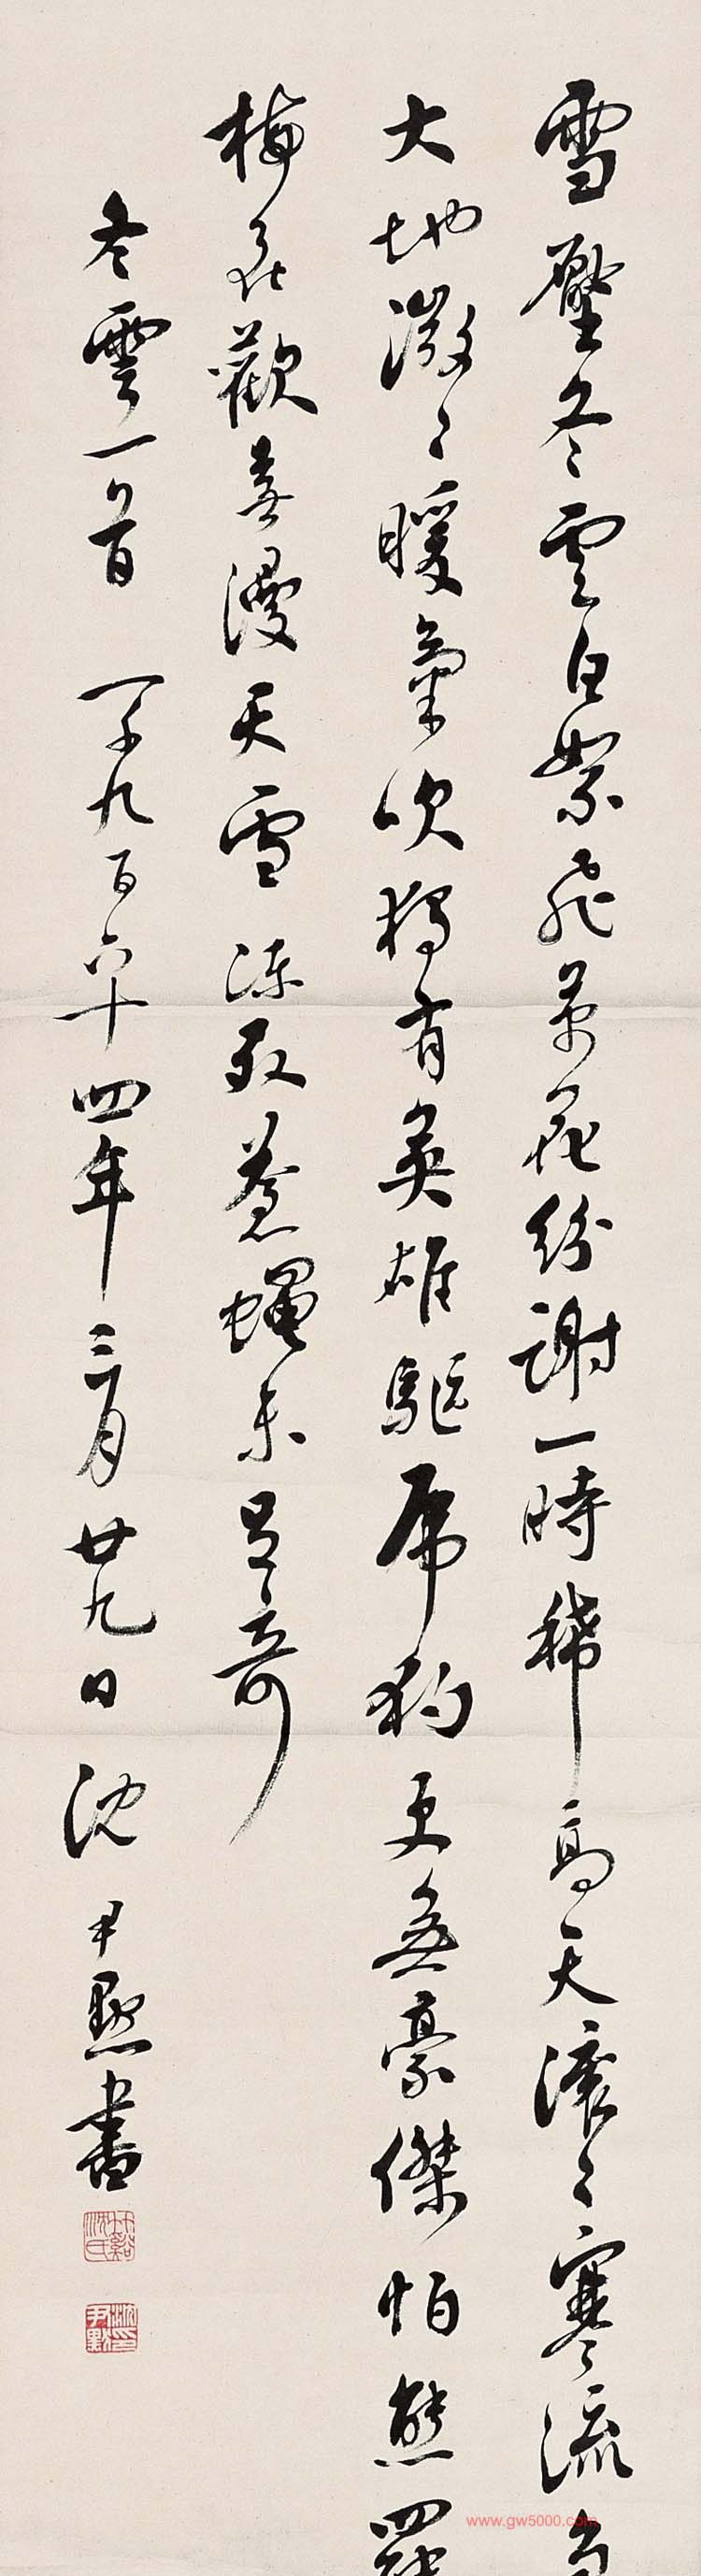 雪壓冬雲白絮飛萬花紛謝一時稀高天滾〻寒流
大地微〻暖氣吹獨有英雄驅虎豹更無豪傑怕熊羆
梅花歡喜漫天雪凍死蒼蠅未足奇
冬雲一首 一千九百六十四年三月廿九日沈尹默書
竹谿沈氏
沈尹默印
www.gw5000.com